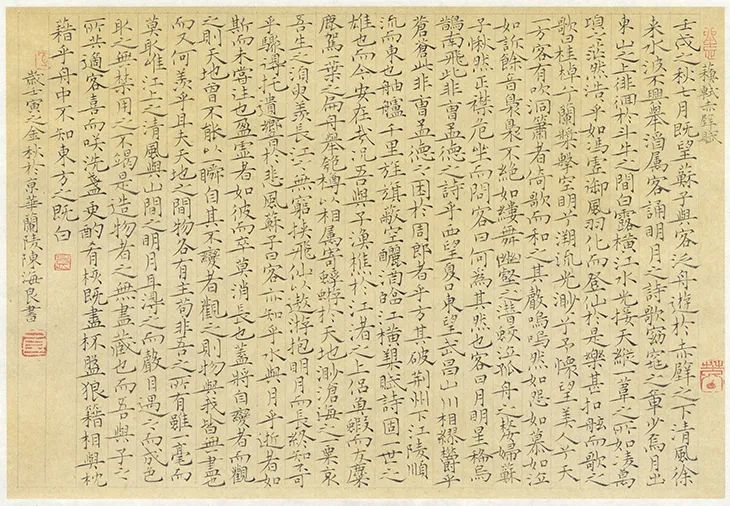 蘇軾赤壁賦
壬戌之秋七月既望蘇子與客泛舟遊於赤壁之下清風徐
来水波不興舉酒属客誦明月之詩歌窈窕之章少焉月出
東山之上徘徊於斗牛之間白露橫江水光接天縱一葦之所如淩萬
頃之茫然浩乎如馮虛御風羽化而登仙於是樂甚扣舷而歌之
歌曰桂棹兮蘭槳擊空明兮溯流光渺兮予懷望美人兮天
一方客有吹洞簫者倚歌而和之其聲嗚嗚然如怨如慕如泣
如訴餘音裊裊不絕如縷舞幽壑之潛蛟泣孤舟之嫠婦蘇
子愀然正襟危坐而問客曰何為其然也客曰月明星稀烏
鵲南飛此非曹孟德之詩乎西望夏口東望武昌山川相繆鬱乎
蒼蒼此非曹孟德之困於周郎者乎方其破荊州下江陵順
流而東也舳艫千里旌旗蔽空釃酒臨江橫槊賦詩固一世之
雄也而今安在哉況吾與子漁樵於江渚之上侶魚蝦而友麋
鹿駕一葉之扁舟舉匏樽以相属寄蜉蝣於天地渺滄海之一粟哀
吾生之須臾羨長江之無窮挾飛仙以遨游抱明月而長終知不可
乎驟得托遺響於悲風蘇子曰客亦知乎水與月乎逝者如
斯而未嘗往也盈虛者如彼而卒莫消長也蓋將自變者而觀
之則天地曾不能以瞬自其不變者觀之則物與我皆無盡也
而又何羨乎且夫天地之間物各有主苟非吾之所有雖一毫而
莫取惟江上之清風與山間之明月耳得之而聲目遇之而成色
取之無禁用之不竭是造物者之無盡藏也而吾與子之
所共適客喜而咲洗盞更酌肴核既盡杯盤狼籍相與枕
籍乎舟中不知東方之既白
歲壬寅之金秋於京華蘭陵陳海良書